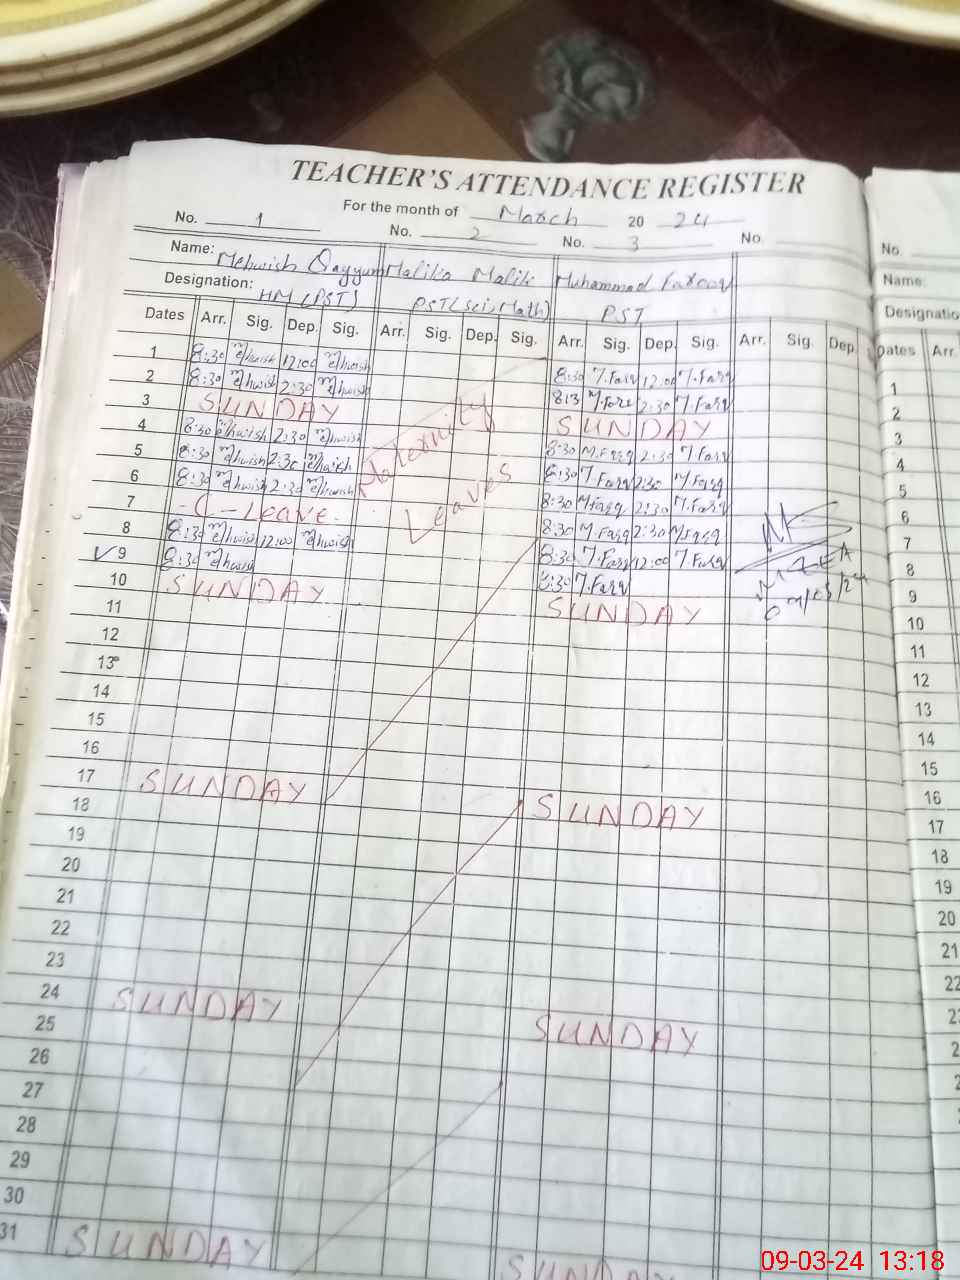 TEACHER'S ATTENDANCE REGISTER
For the month of March 20 24
No. 1 No. 2 No. 3 No.
Name: Mehwish Qayyum Malika Malik Muhammad Farooq
Designation: HM (PST) PST (Sci, Math) PST
Dates Arr. Sig. Dep. Sig. Arr. Sig. Dep. Sig. Arr. Sig. Dep. Sig. Arr. Sig. Dep.
1 8:30 Mehwish 12:00 Mehwish 8:30 12:00
2 8:30 Mehwish 2:30 Mehwish 2:30
3 SUNDAY SUNDAY
4 8:30 Mehwish 2:30 Mehwish 8:30 2:30
5 8:30 Mehwish 2:30 Mehwish 8:30 2:30
6 8:30 Mehwish 2:30 Mehwish 8:30 2:30
7 - C - Leave - 8:30 2:30
8 8:30 Mehwish 12:00 Mehwish 8:30 12:00
9 8:30 Mehwish 8:30
10 SUNDAY SUNDAY
Maternity
Leaves
11
12
13
14
15
16
17 SUNDAY SUNDAY
18
19
20
21
22
23
24 SUNDAY SUNDAY
25
26
27
28
29
30
31 SUNDAY SUNDAY
No.
Name:
Dates Arr.
1
2
3
4
5
6
7
8
9
10
11
12
13
14
15
16
17
18
19
20
21
22
09-03-24 13:18